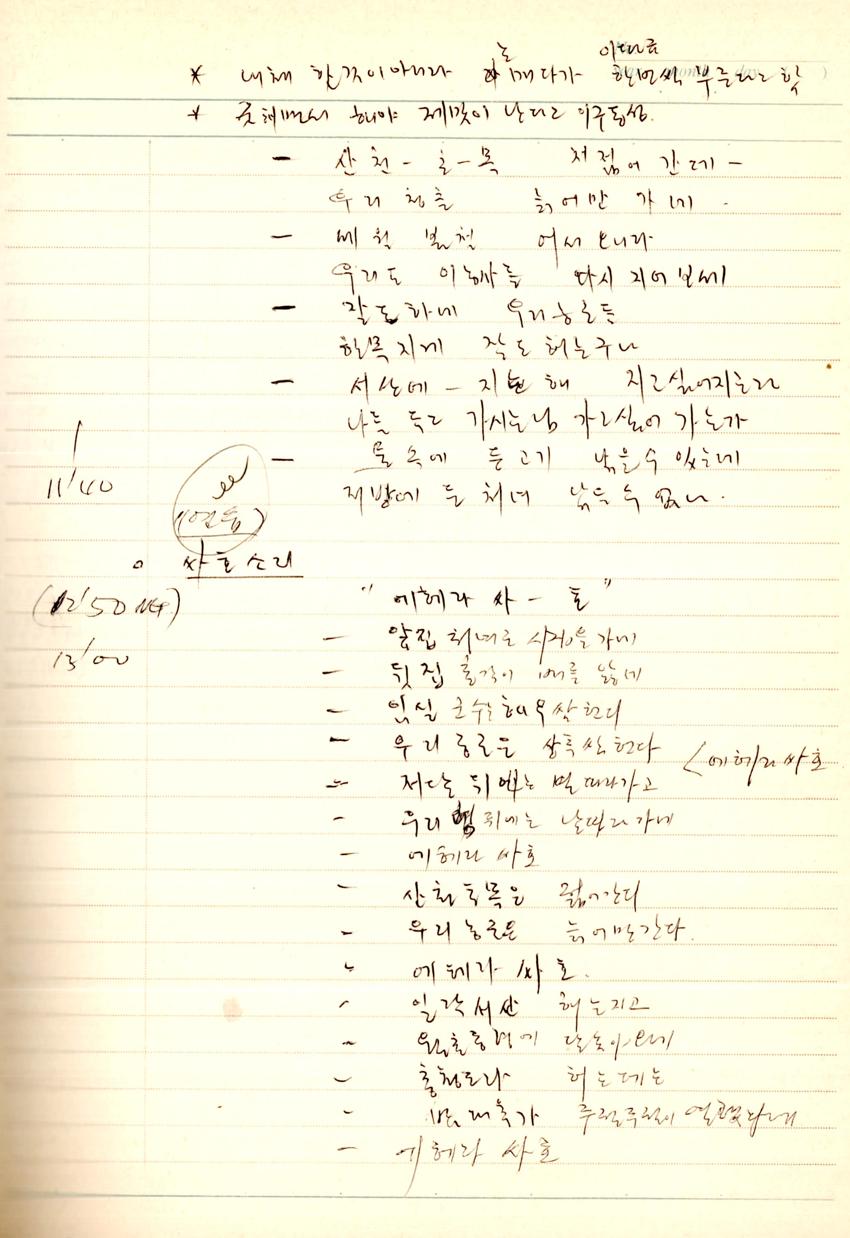 * 내체 한것이아니라 논 매다가 이따금 한번씩 부른다고 함
* 굿체면서 해야 제맛이 난다고 이구동성.
- 산천-초-목 저젊어 간데-
우리 청춘 늙어만 가네.
- 어서 오니라
우리도 이농사를 다시 지어보세
- 잘도하네 우리농군들
한목지게 잘도 허는구나
- 서산에- 지는 해 지고싶어지는라
나를 두고 가시는님 가고싶어 가는가
11'40
- 물 속에 든고기 낚을수 있는데
제방에 든 처녀 낚을 수 없나.
◦ 싸호소리
(12'50
" 에헤라 싸-호 "
13'00
- 앞집 처녀는 시집을가네
- 뒷집 총각이 배를 앓네
- 임실
- 우리농군은 상특쌈 헌다 < 에헤라 싸호
- 저다는 뒤에는 별따라가고
- 우리 뒤에는 날따라가네
- 에헤라 싸호
- 산천초목은 젊어간다
- 우리 농군은 늙어만간다.
- 에헤라 싸호.
- 일락서산 해는지고
- 월출동령에 달솟아오네
- 춘향도라 허는데는
- 가 주렁주렁이 열렸다네
- 에헤라 싸호